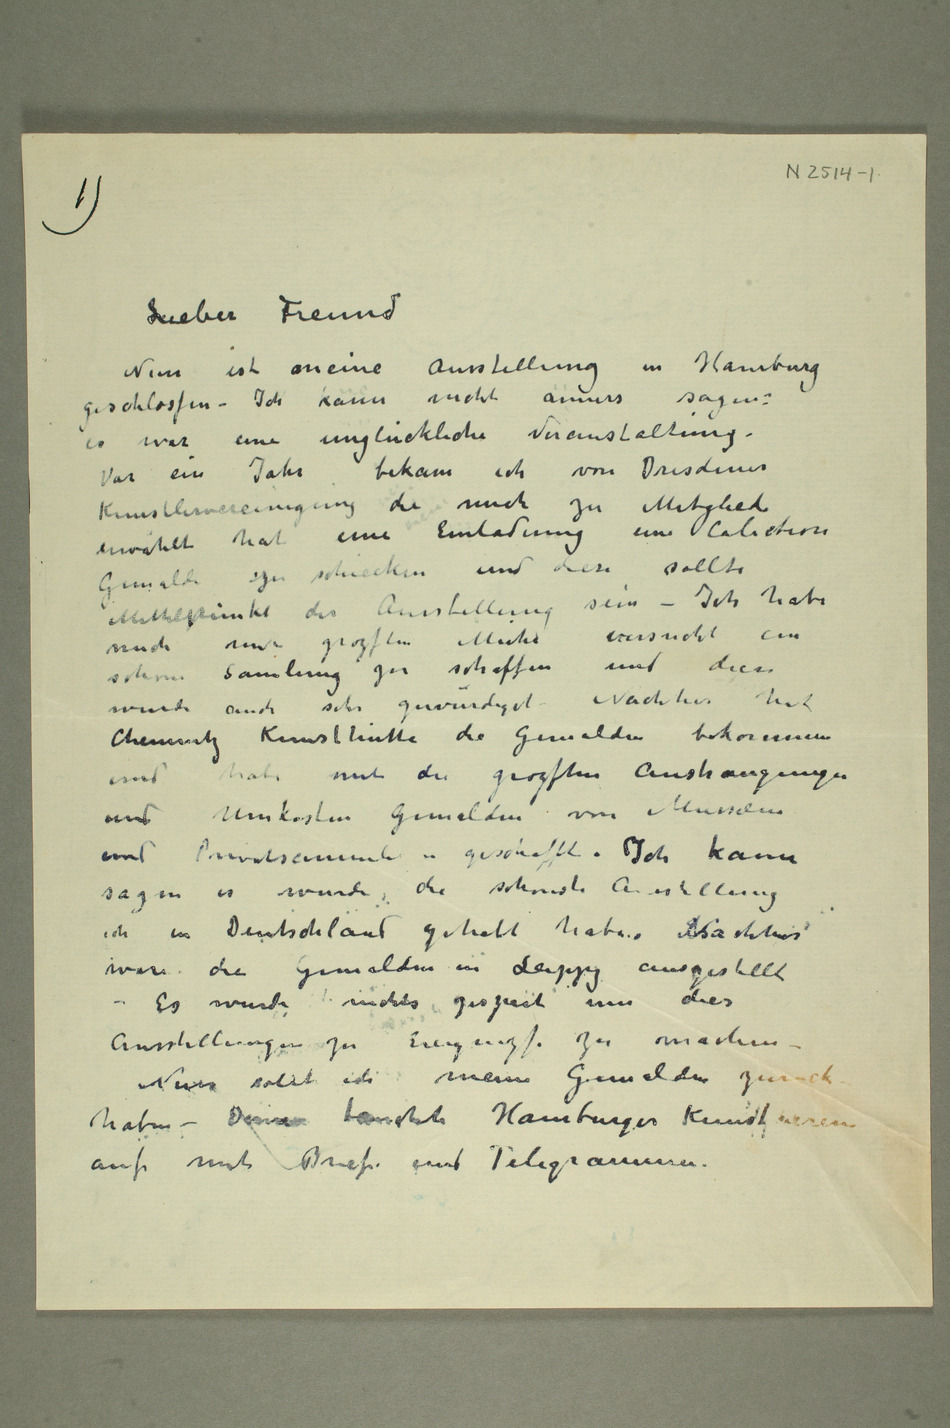 N 2514-1
1)
Lieber Freund
Nun ist meine Ausstellung in Hamburg
geschlossen – Ich kann nicht anners sagen:
es war eine unglückliche Veranstaltung –
Vor ein Jahr bekam ich von Dresdener
Kunstlervereinigung die mich zu Mitgliede
erwählt hat eine Einladung eine Colection
Gemälde zu schiecken und diese sollte
Mittelpunkt der Ausstellung sein – Ich habe
mich mit grozsten Muhe versucht ein
schone Samlung zu schaffen und diese
wurde auch sehr gewürdiget – Nachher hat
Chemnitz Kunsthütte die Gemalden bekommen
und habe mit die grozsten Anstrangungen
und Umkosten Gemalden von Museum
und Privatsammler geschafft. Ich kann
sagen es wurde die schonste Ausstellung
ich in Deutschland gehabt habe. Nachher
ware die Gemalden in Leipzig ausgestellt
– Es wurde nichts gespart um dies
Ausstellungen zu Ereignisse zu machen –
Nun sollt ich meine Gemalden zurück
haben – Dann tauchte Hamburger Kunstverein
auf mit Briefe und Telegrammer.